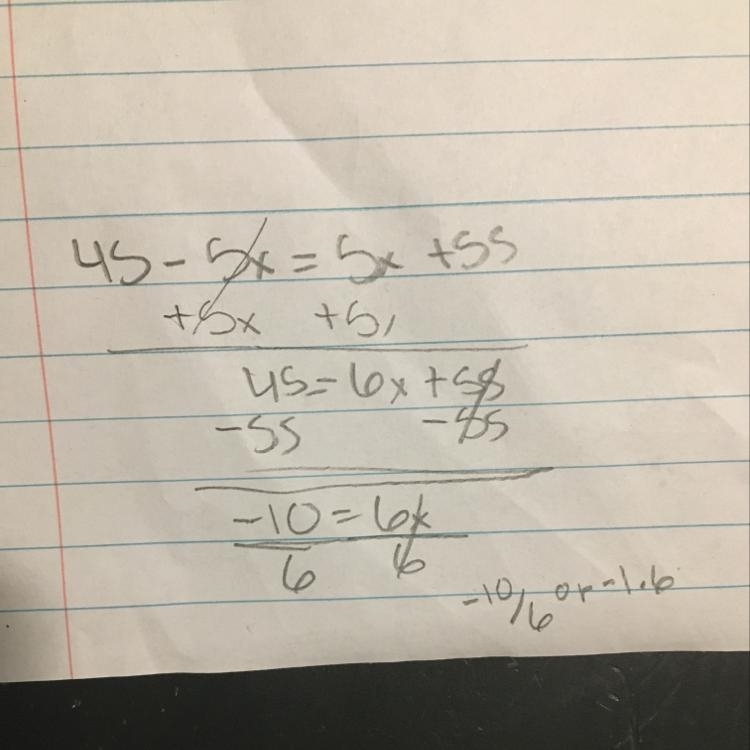 45 - 5x = 5x + 55
+5x +5x
45 = 6x + 55
-55 -55
-10 = 6x
6 6
-10/6 or -1.6